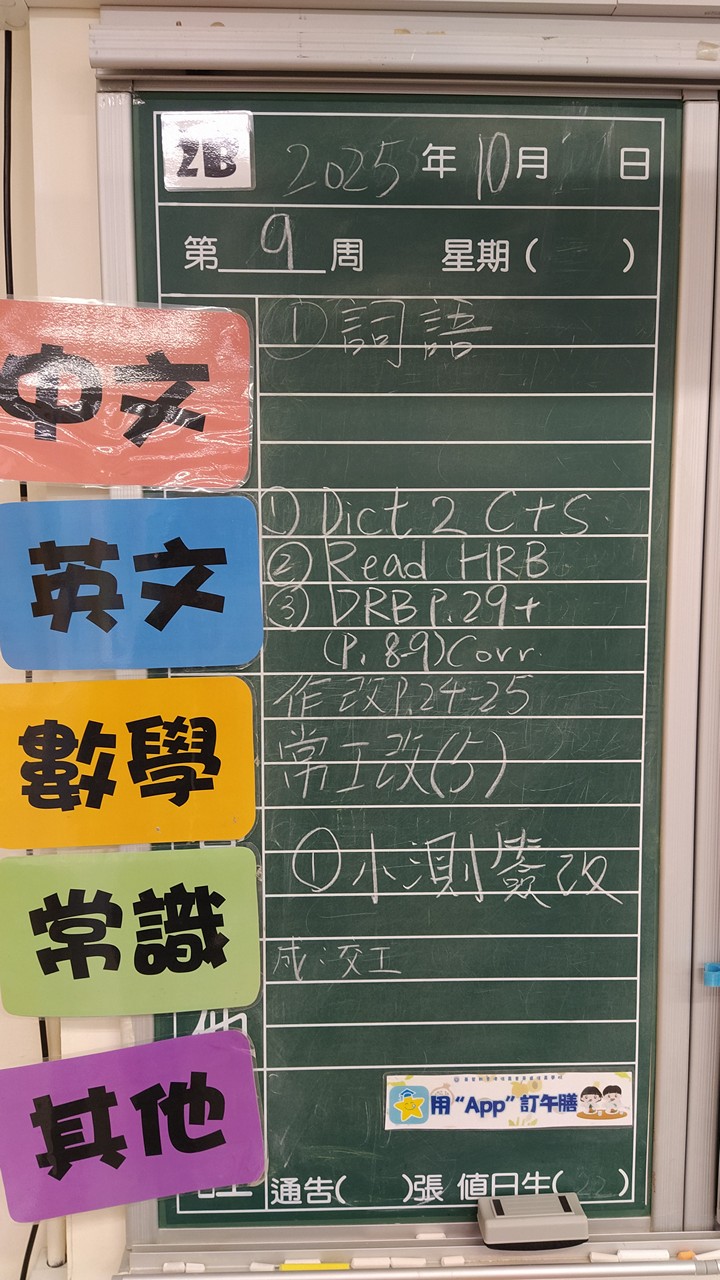 2B 2025年10月 日
第 9 周 星期( )
中文
① 詞語
英文
① Dict 2 C+S
② Read HRB
③ DRB P.29+
(P. 8-9) Corr.
數學
作改P.24-25
常工改(5)
常識
① 小測簽改
成:交工
他
其他
用“App”訂午膳
通告( )張 值日生( )